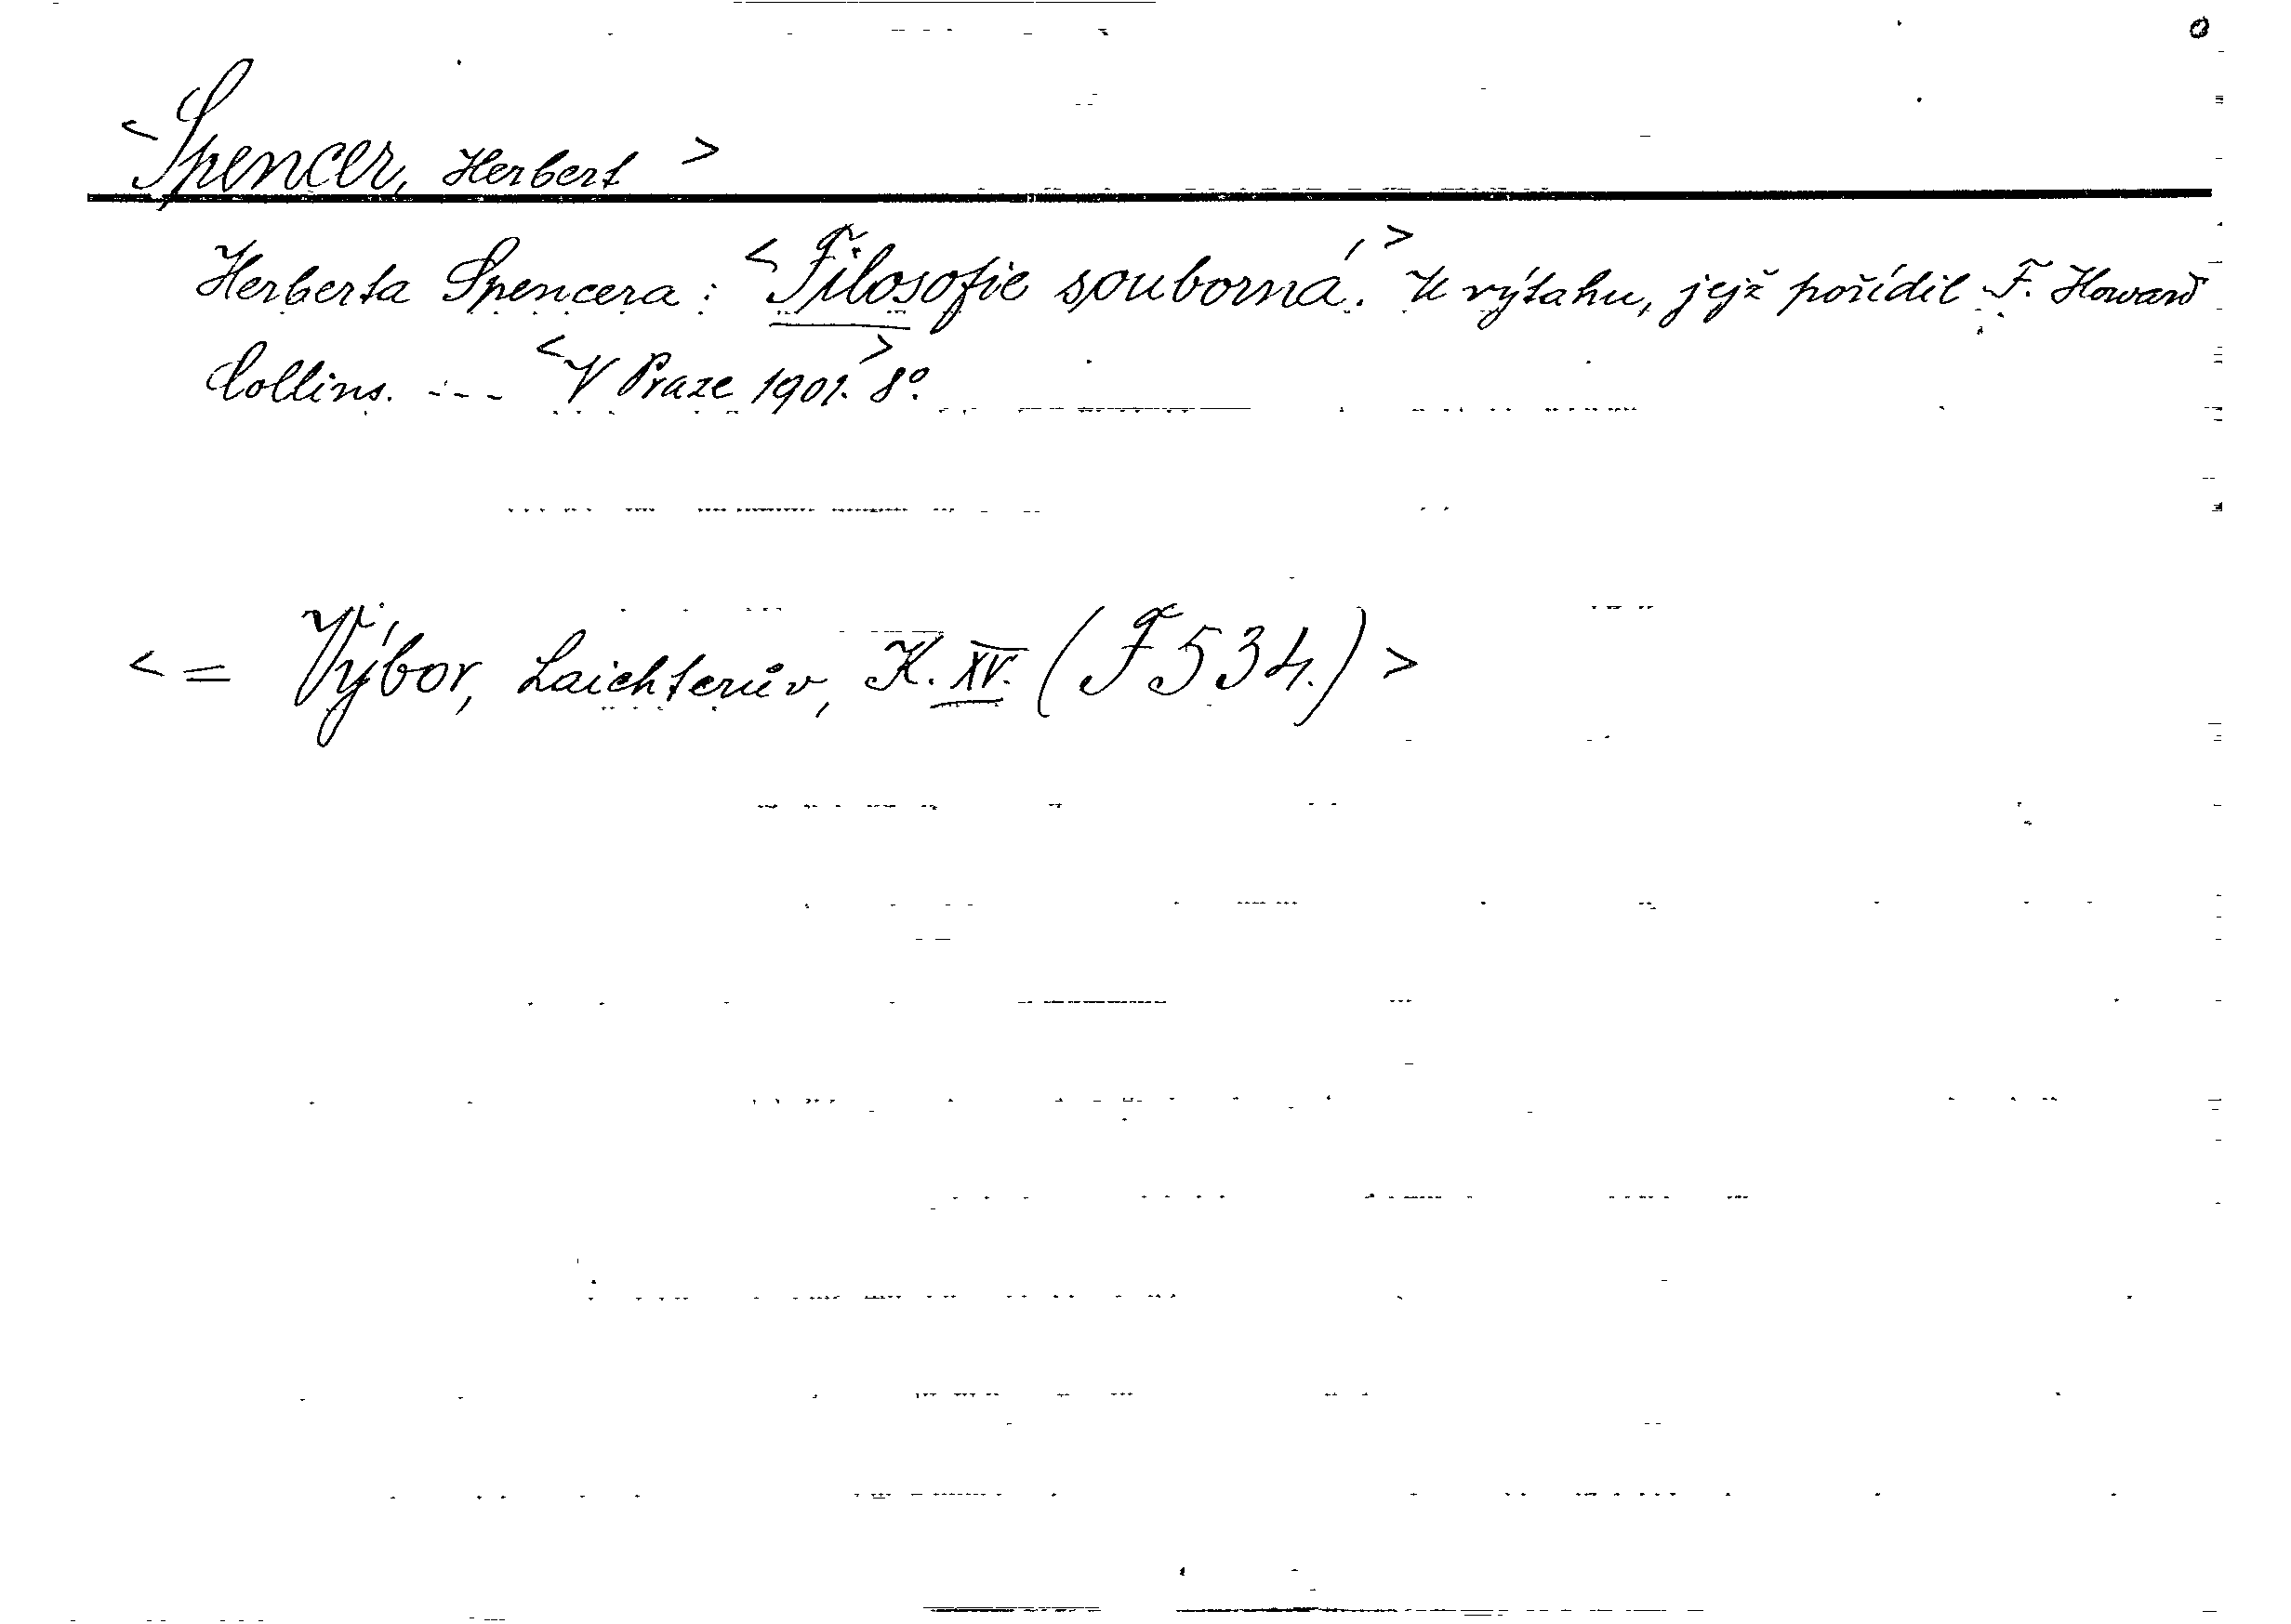 <Spencer, Herbert>
Herberta Spencera: <Filosofie souborná.> U výtahu, jejž pořídil F. Howard
Collins. --- <V Praze 1901.> 8º.
<= Výbor, Laichterův, K. XV. (F 534.)>